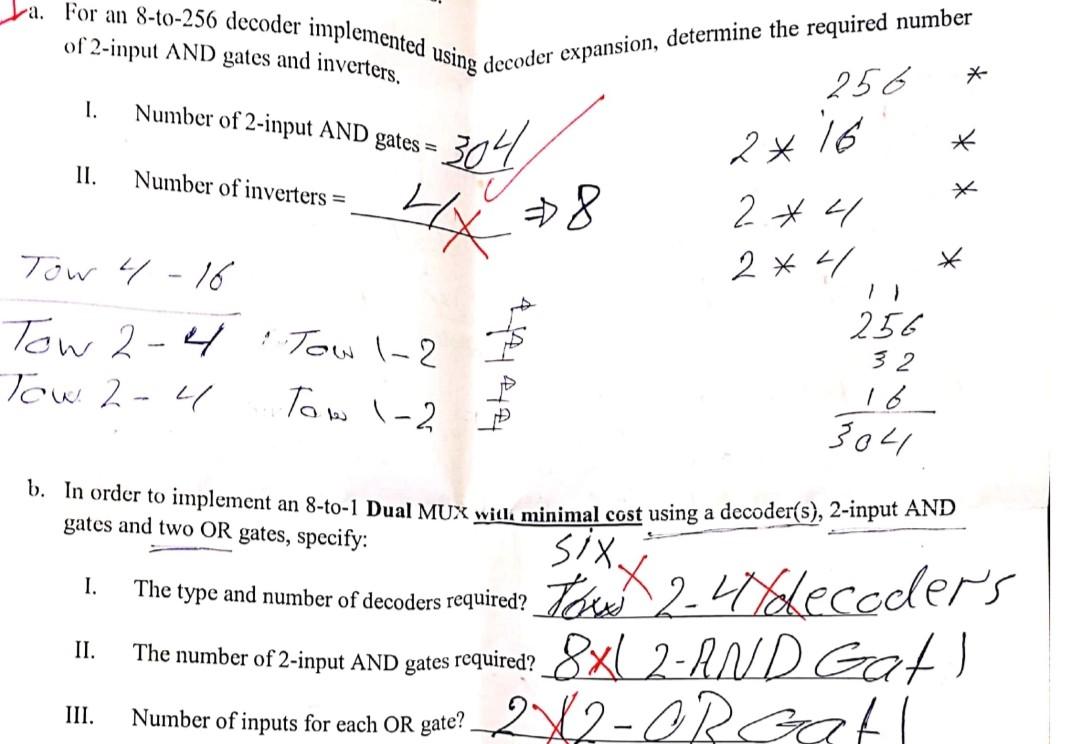 a. For an 8-to-256 decoder implemented using decoder expansion, determine the required number
of 2-input AND gates and inverters.
256 *
I. Number of 2-input AND gates = 304
2 * 16 *
II. Number of inverters = 4 X ⇒ 8
2 * 4 *
2 * 4 *
Tow 4 - 16
11
256
Tow 2 - 4 : Tow 1-2
32
Tow 2 - 4 Tow 1-2
16
304
b. In order to implement an 8-to-1 Dual MUX with minimal cost using a decoder(s), 2-input AND
gates and two OR gates, specify:
six
I. The type and number of decoders required? 2-4 decoders
II. The number of 2-input AND gates required? 8 x( 2-AND Gat )
III. Number of inputs for each OR gate? 2 X 2-OR Gat